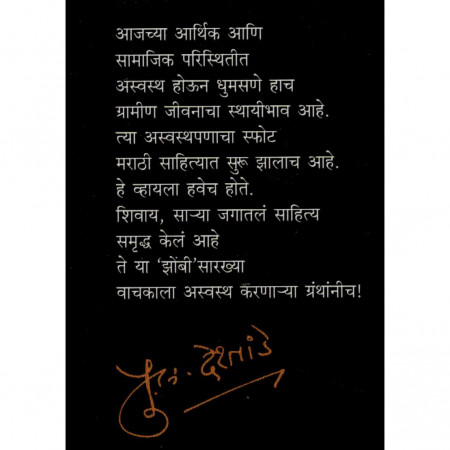 आजच्या आर्थिक आणि
सामाजिक परिस्थितीत
अस्वस्थ होऊन धुमसणे हाच
ग्रामीण जीवनाचा स्थायीभाव आहे.
त्या अस्वस्थपणाचा स्फोट
मराठी साहित्यात सुरू झालाच आहे.
हे व्हायला हवेच होते.
शिवाय, साऱ्या जगातलं साहित्य
समृद्ध केलं आहे
ते या ‘झोंबी’सारख्या
वाचकाला अस्वस्थ करणाऱ्या ग्रंथांनीच!
पु. ल. देशपांडे